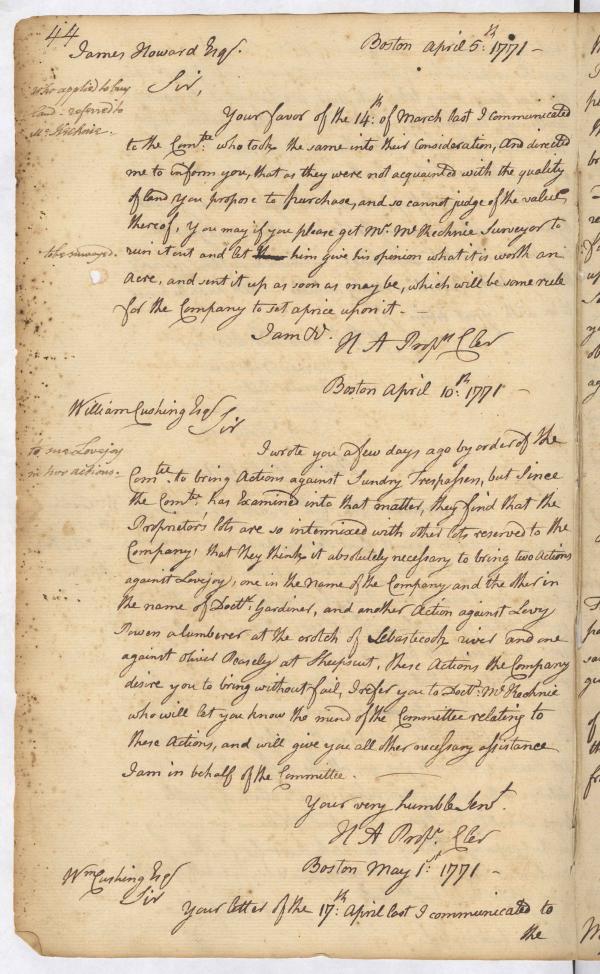 44
James Howard Esqr.
Boston April 5:th 1771 -
who applied to buy
land - referred to
Mc. Kechnie.
Sir,
Your favor of the 14:th of March last I communicated
to the Com:tee who took the same into their Consideration, and directed
me to inform you, that as they were not acquainted with the quality
of land you propose to purchase, and so cannot judge of the value
thereof, You may if you please get Mr. McKechnie Surveyor to
to be surveyed.
run it out and let him give his opinion what it is worth an
Acre, and sent it up as soon as may be, which will be some rule
for the Company to set a price upon it. -
I am &c.
H A Prop:rs Cler
Boston April 10:th 1771 -
William Cushing Esqr
Sir
to sue Lovejoy
in two actions.
I wrote you a few days ago by order of the
Com:tee to bring Actions against Sundry Trespasses, but Since
the Com:tee has Examined into that matter, they find that the
Proprietor's lots are so intermixed with other lots reserved to the
Company, that they think it absolutely necessary to bring two Actions
against Lovejoy, one in the name of the Company and the other in
the name of Doct:r Gardiner, and another Action against Levy
Powers a lumberer at the crotch of Sebastecook river and one
against Oliver Peasely at Sheepscut, these Actions the Company
desire you to bring without fail, I refer you to Doct:r McKechnie
who will let you know the mind of the Committee relating to
these Actions, and will give you all other necessary assistance
I am in behalf of the Committee.
Your very humble Servt.
H A Prop:r Cler
Boston May 1:st 1771 -
Wm Cushing Esqr
Sir
Your letter of the 17:th April last I communicated to
the